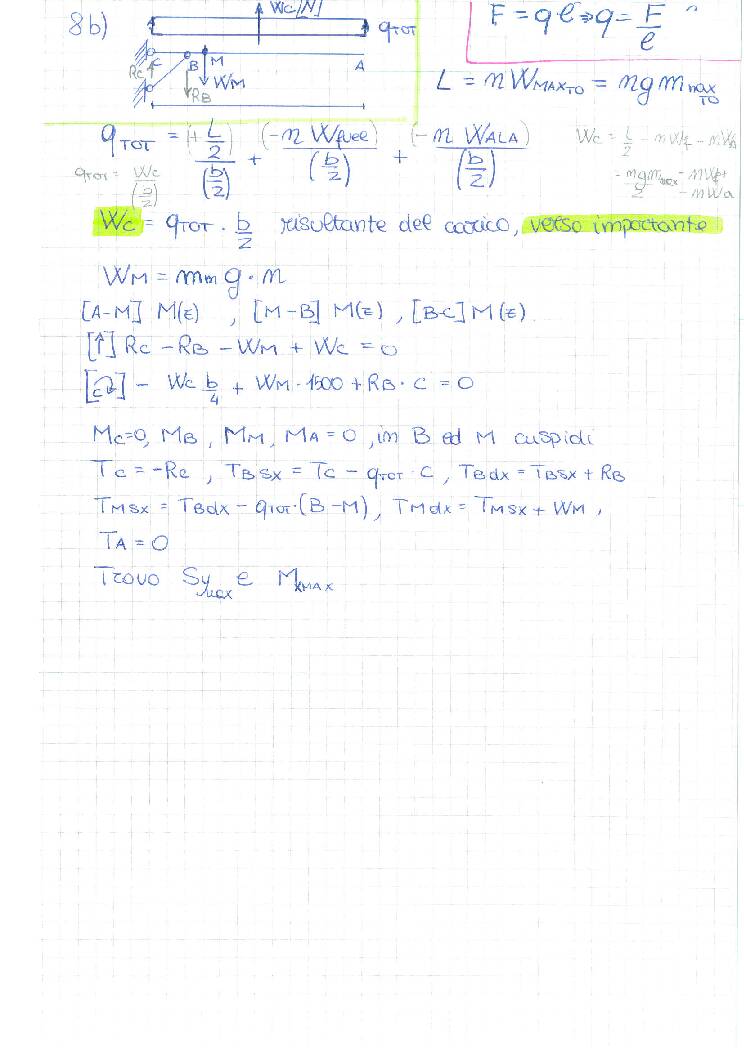 8b)
Wc [N]
qTOT
F = q·l ⇒ q = F/l
C B M A
Rc
WM
RB
L = n WMAXTO = n g m maxTO
qTOT = (+ L/2)/(b/2) + (-n Wfuel)/(b/2) + (-n WALA)/(b/2)
qTOT = Wc/(b/2)
Wc = L/2 - n Wf - n Wa
= n g mmax/2 - n Wf + - n Wa
Wc = qTOT · b/2 risultante del carico, verso importante
WM = mm g · n
[A-M] M(z) , [M-B] M(z) , [B-C] M(z)
[↑] Rc - RB - WM + Wc = 0
[C↷] - Wc b/4 + WM · 1500 + RB · C = 0
Mc=0, MB , MM, MA = 0 , in B ed M cuspidi
Tc = -Rc , TBsx = Tc - qTOT · C , TBdx = TBsx + RB
TMsx = TBdx - qTOT·(B-M), TMdx = TMsx + WM ,
TA = 0
Trovo Symax e MxMAX